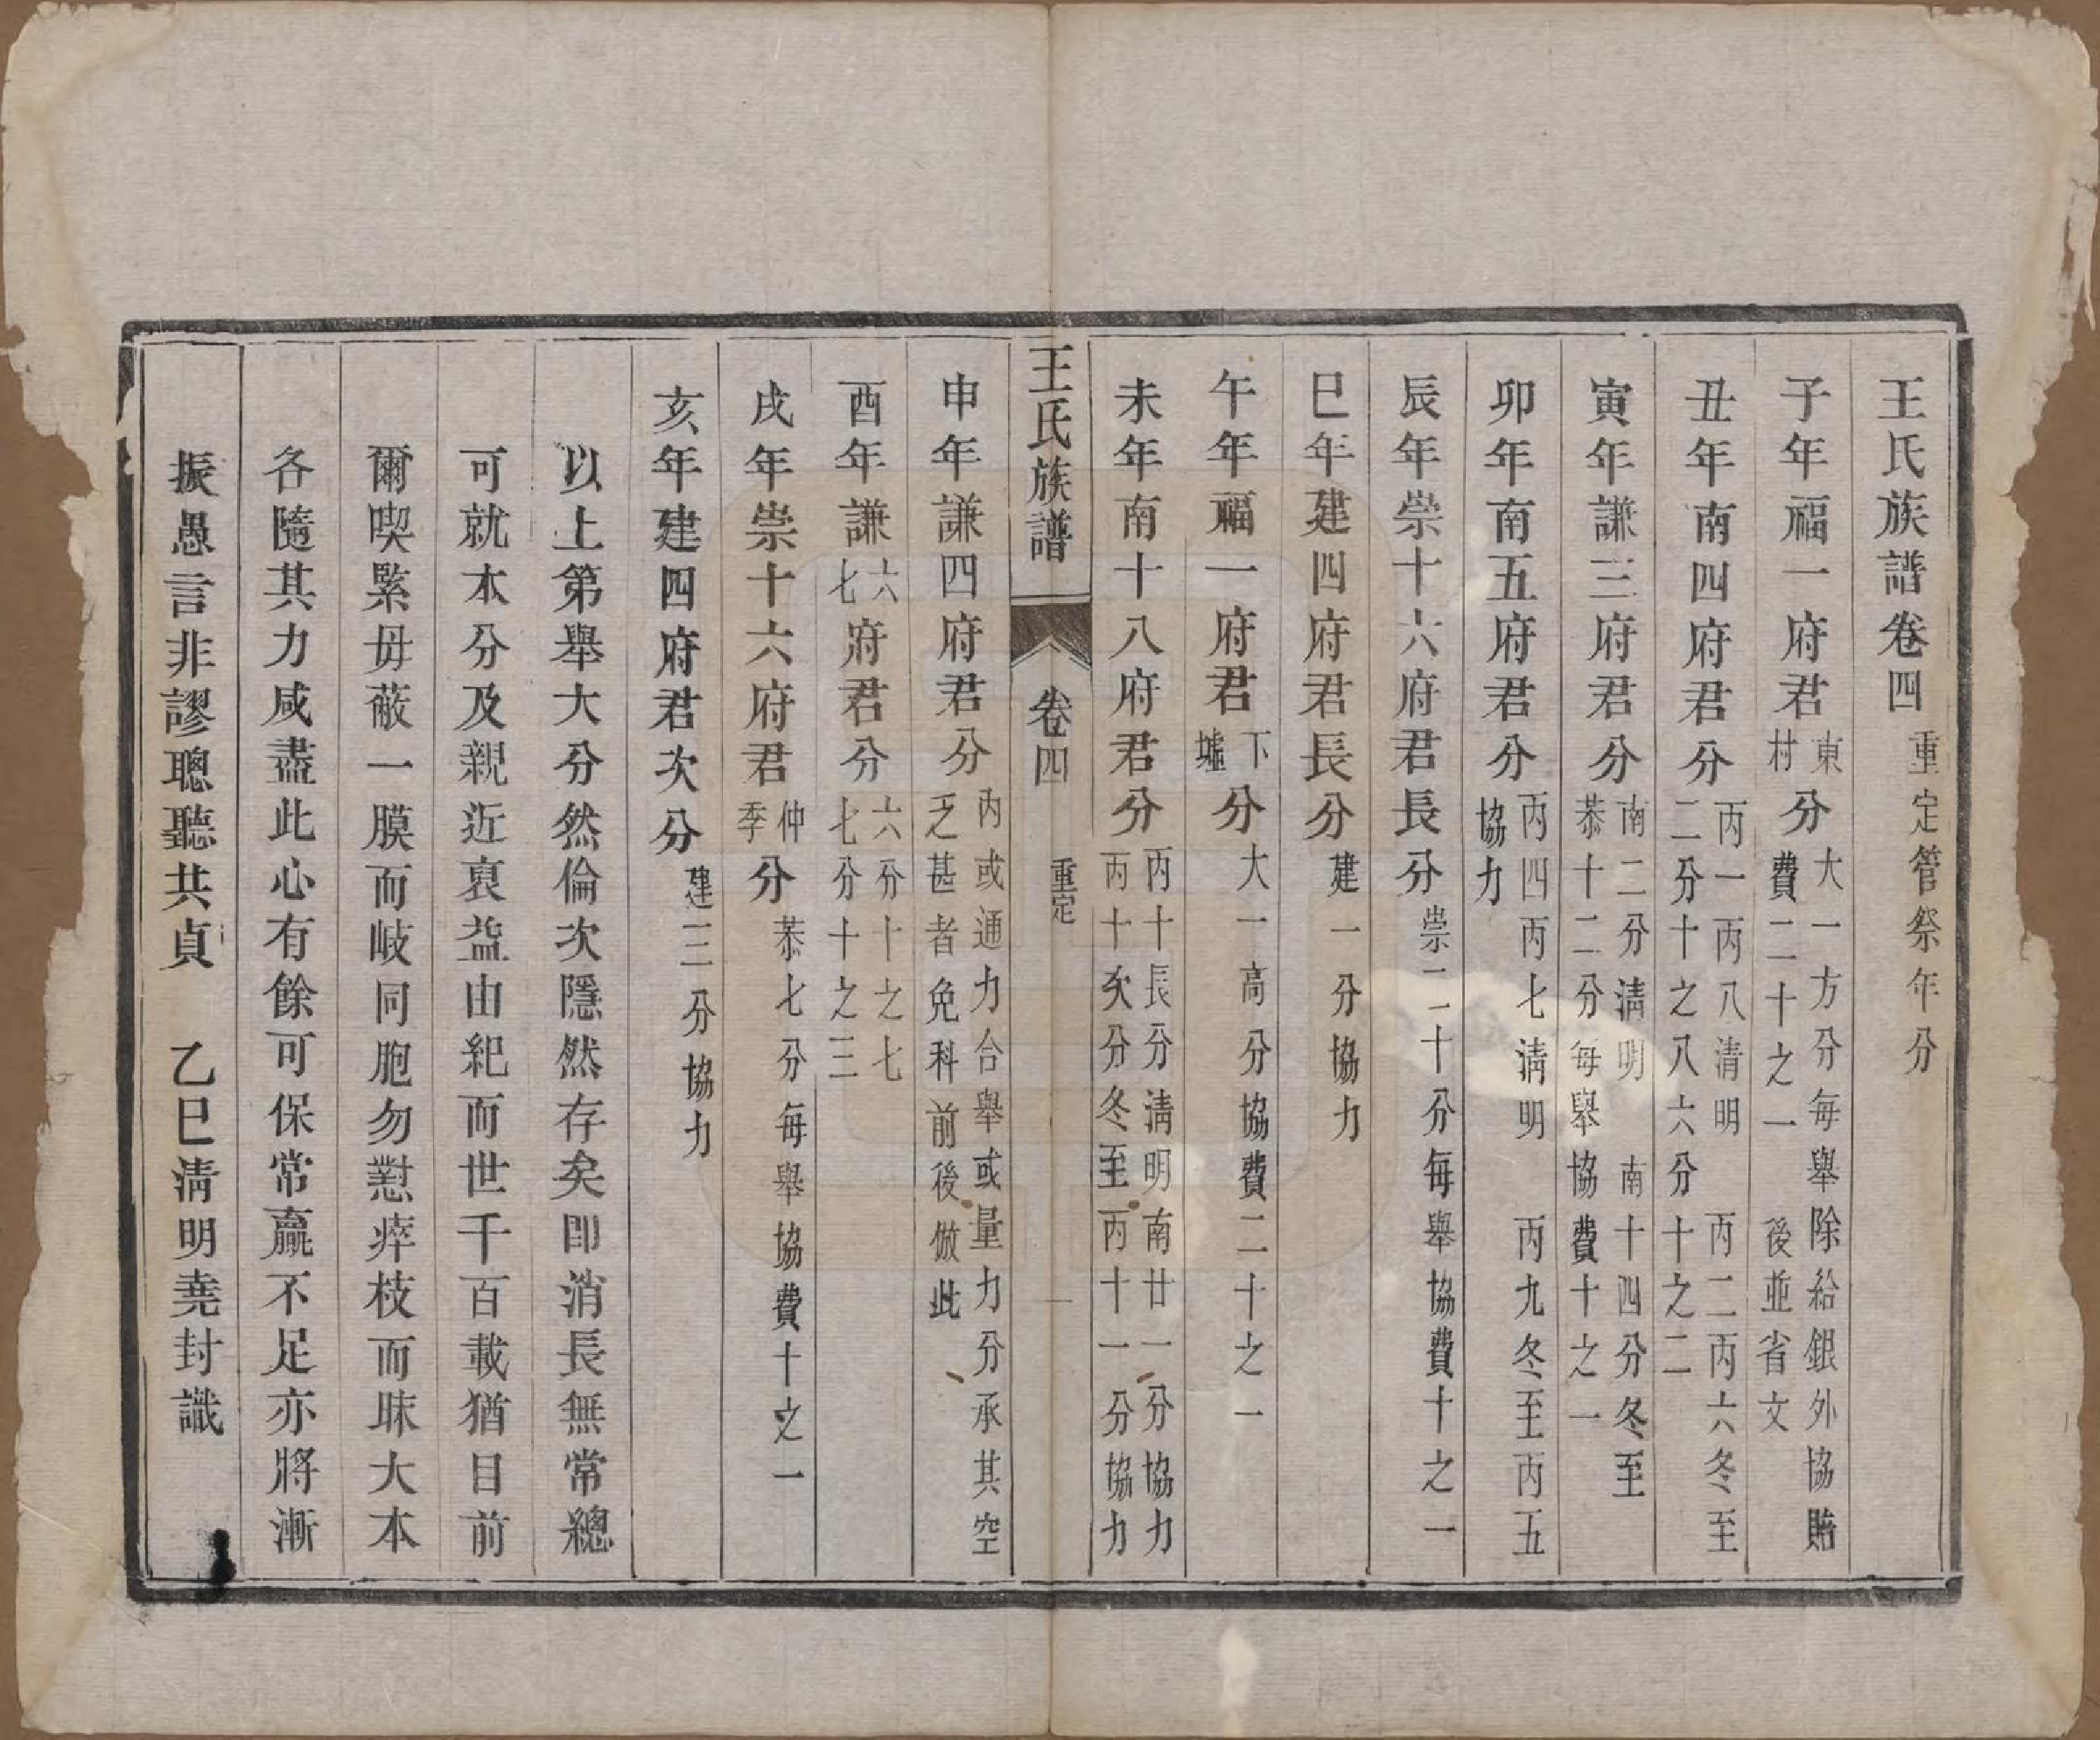 王氏族譜卷四 重定管祭年分
子年福一府君東村分大一方分每舉除給銀外協賠費二十之一 後並省文
丑年南四府君分丙一丙八清明 丙二丙六冬至二分十之八六分十之二
寅年謙三府君分南二分清明 南十四分冬至恭十二分每舉協費十之一
卯年南五府君分丙四丙七清明 丙九冬至丙五協力
辰年崇十六府君長分崇二二十分每舉協費十之一
巳年建四府君長分建一分協力
午年福一府君下墟分大一高分協費二十之一
未年南十八府君分丙十長分清明南廿一分協力丙十次分冬至丙十一分協力
王氏族譜 卷四 重定 一
申年謙四府君分內或通力合舉或量力分承其空乏甚者免科前後倣此
酉年謙六七府君分六分十之七七分十之三
戌年崇十六府君仲季分恭七分每舉協費十之一
亥年建四府君次分建三分協力
以上第舉大分然倫次隱然存矣卽消長無常總
可就本分及親近裒益由紀而世千百載猶目前
爾喫緊毋蔽一膜而岐同胞勿懟瘁枝而昧大本
各隨其力咸盡此心有餘可保常贏不足亦將漸
振愚言非謬聰聽共貞 乙巳清明堯封識